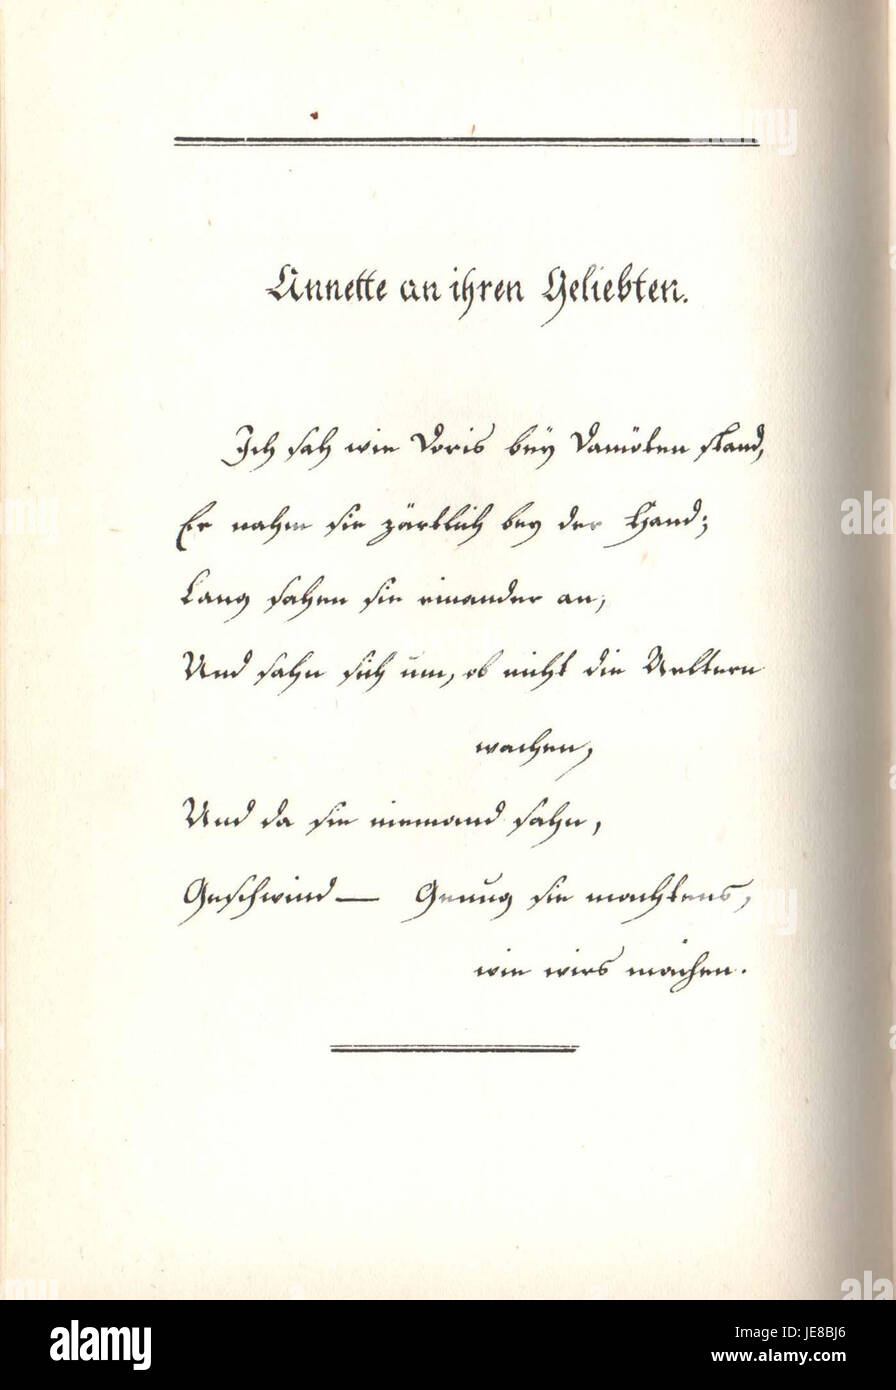 Annette an ihren Geliebten.
Ich sah wie Doris bey Damöten stand,
Er nahm sie zärtlich bey der Hand;
Lang sahen sie einander an,
Und sahn sich um, ob nicht die Aeltern
wachen,
Und da sie niemand sahn,
Geschwind — Genug sie machtens,
wie wirs machen.
alamy
Image ID: JE8BJ6
www.alamy.com